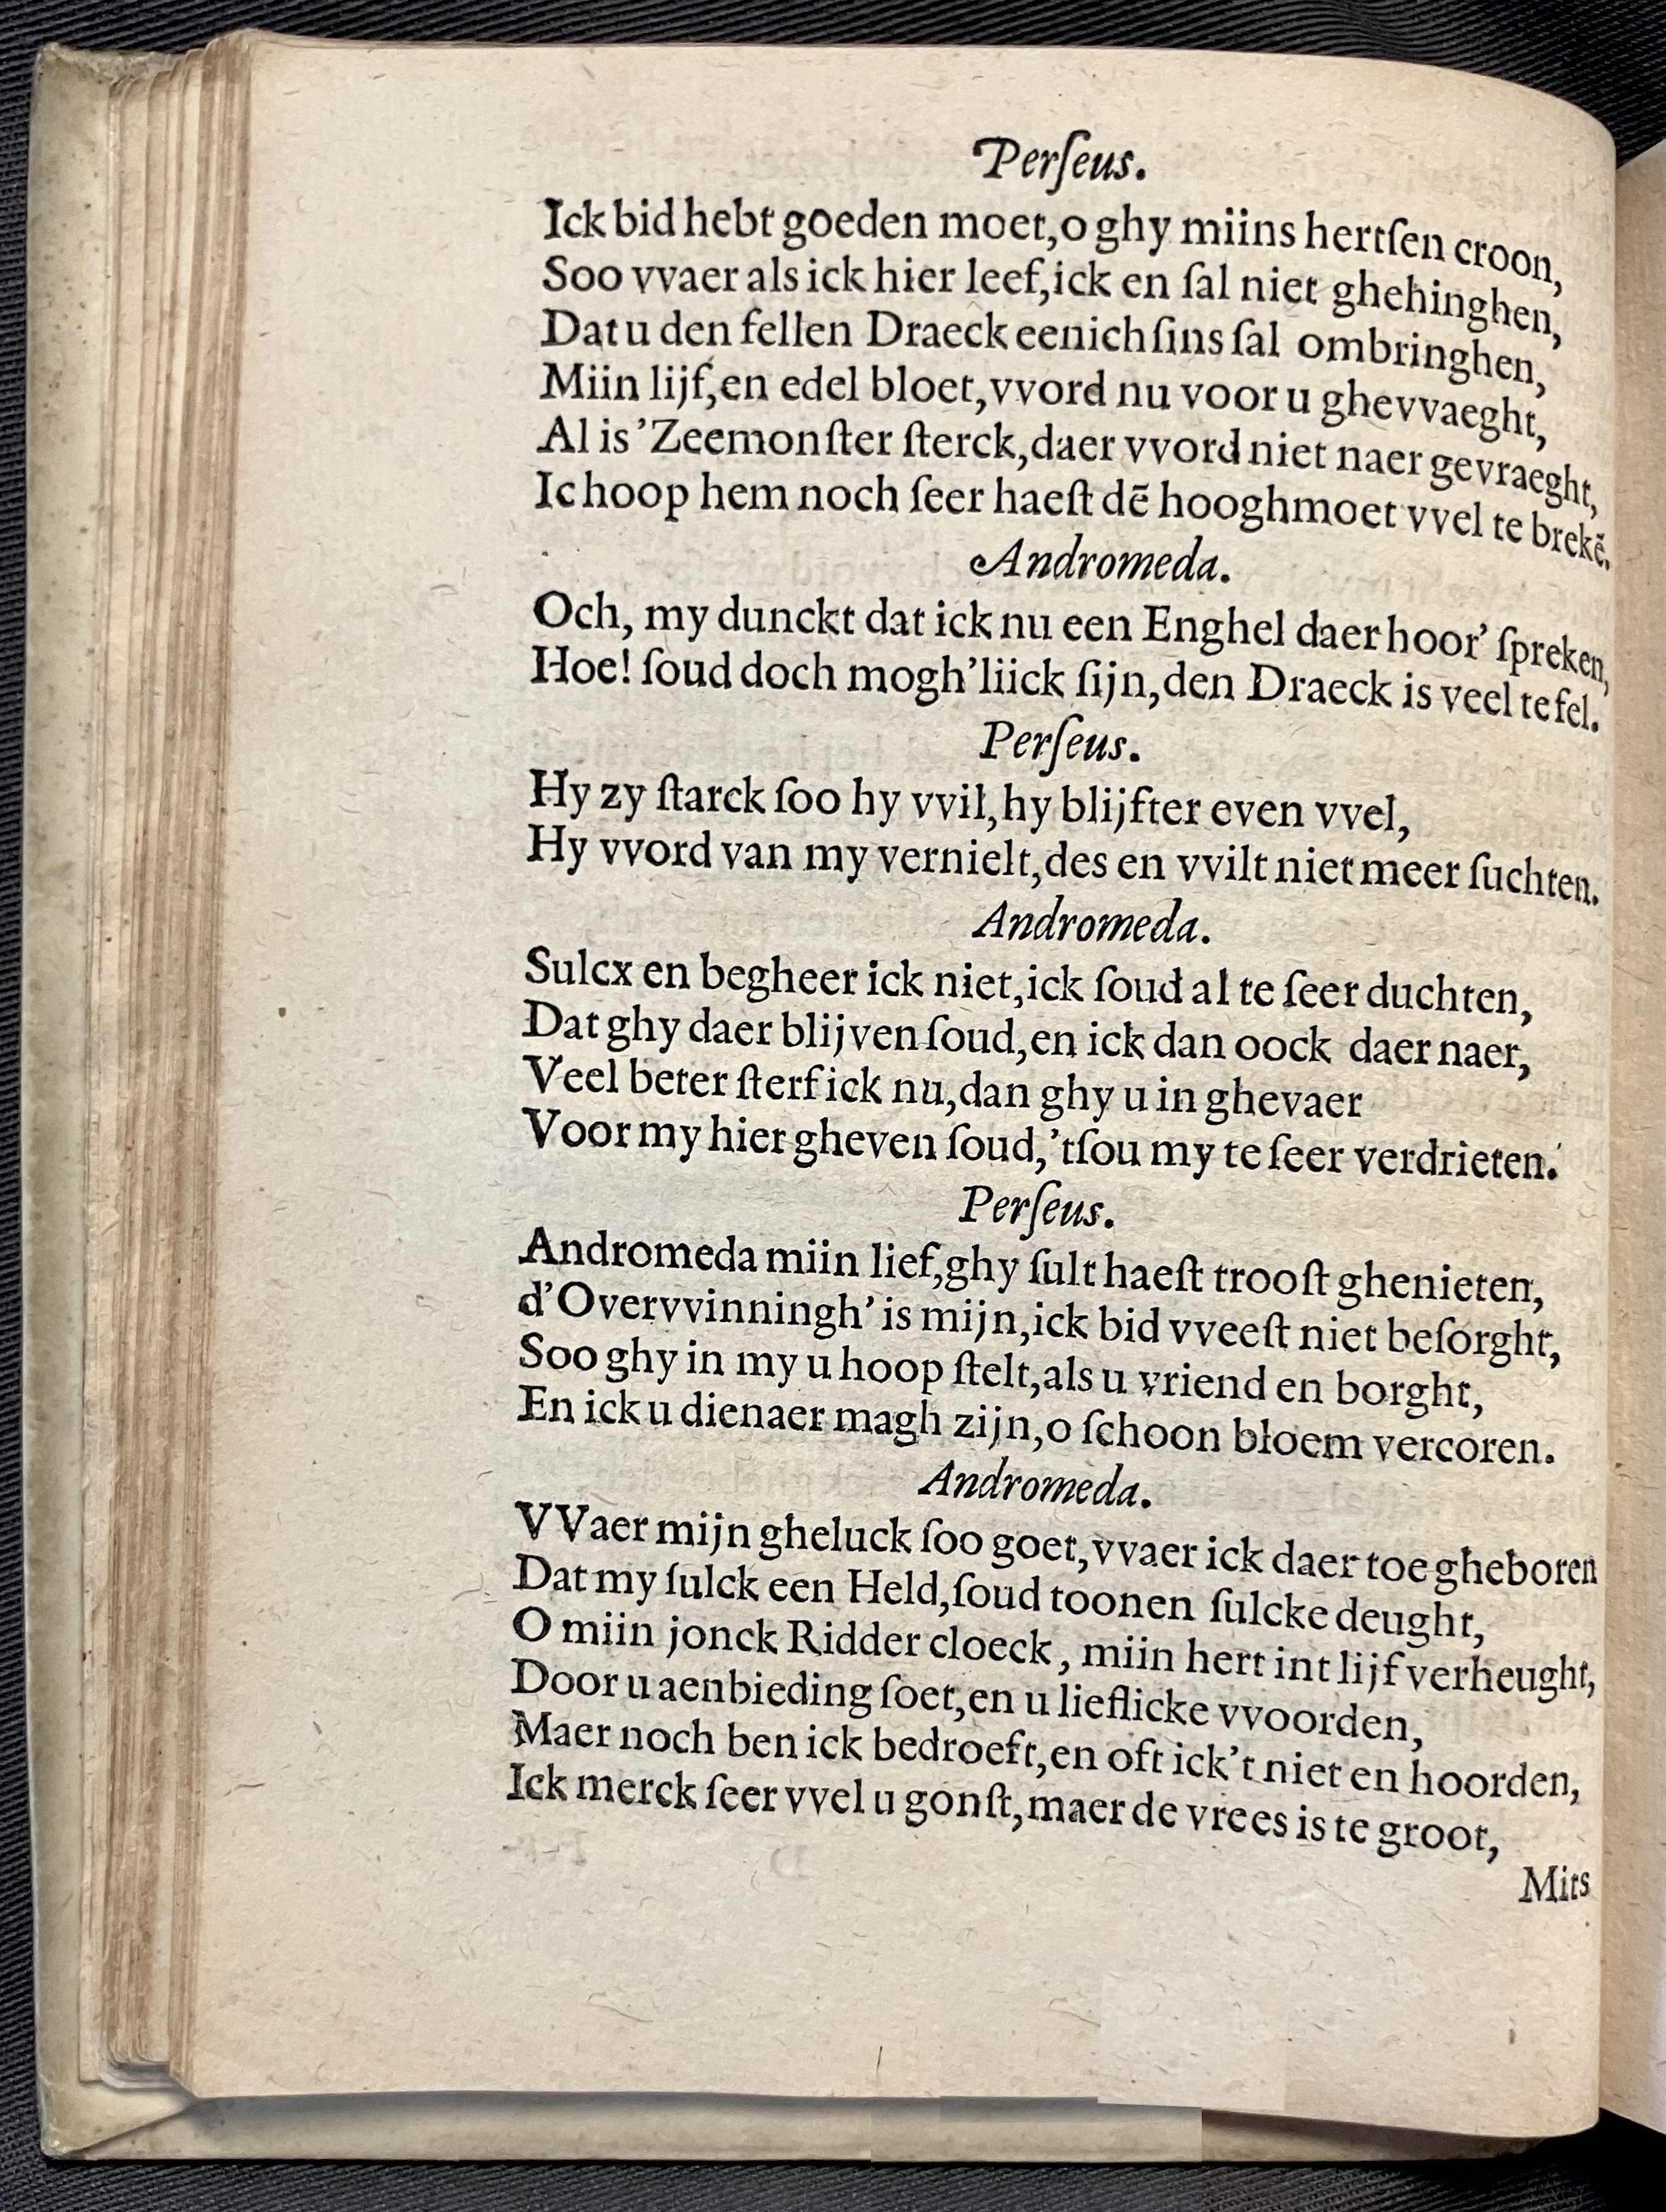 Perſeus.
Ick bid hebt goeden moet, o ghy miins hertſen croon,
Soo vvaer als ick hier leef, ick en ſal niet ghehinghen,
Dat u den fellen Draeck eenich ſins ſal ombringhen,
Miin lijf, en edel bloet, vvord nu voor u ghevvaeght,
Al is 'Zeemonſter ſterck, daer vvord niet naer gevraeght,
Ic hoop hem noch ſeer haeſt dē hooghmoet vvel te brekē.
Andromeda.
Och, my dunckt dat ick nu een Enghel daer hoor' ſpreken,
Hoe! ſoud doch mogh'liick ſijn, den Draeck is veel te fel.
Perſeus.
Hy zy ſtarck ſoo hy vvil, hy blijfter even vvel,
Hy vvord van my vernielt, des en vvilt niet meer ſuchten.
Andromeda.
Sulcx en begheer ick niet, ick ſoud al te ſeer duchten,
Dat ghy daer blijven ſoud, en ick dan oock daer naer,
Veel beter ſterf ick nu, dan ghy u in ghevaer
Voor my hier gheven ſoud, 'tſou my te ſeer verdrieten.
Perſeus.
Andromeda miin lief, ghy ſult haeſt trooſt ghenieten,
d'Overvvinningh' is mijn, ick bid vveeſt niet beſorght,
Soo ghy in my u hoop ſtelt, als u vriend en borght,
En ick u dienaer magh zijn, o ſchoon bloem vercoren.
Andromeda.
VVaer mijn gheluck ſoo goet, vvaer ick daer toe gheboren
Dat my ſulck een Held, ſoud toonen ſulcke deught,
O miin jonck Ridder cloeck, miin hert int lijf verheught,
Door u aenbieding ſoet, en u lieflicke vvoorden,
Maer noch ben ick bedroeft, en oft ick't niet en hoorden,
Ick merck ſeer vvel u gonſt, maer de vrees is te groot,
Mits